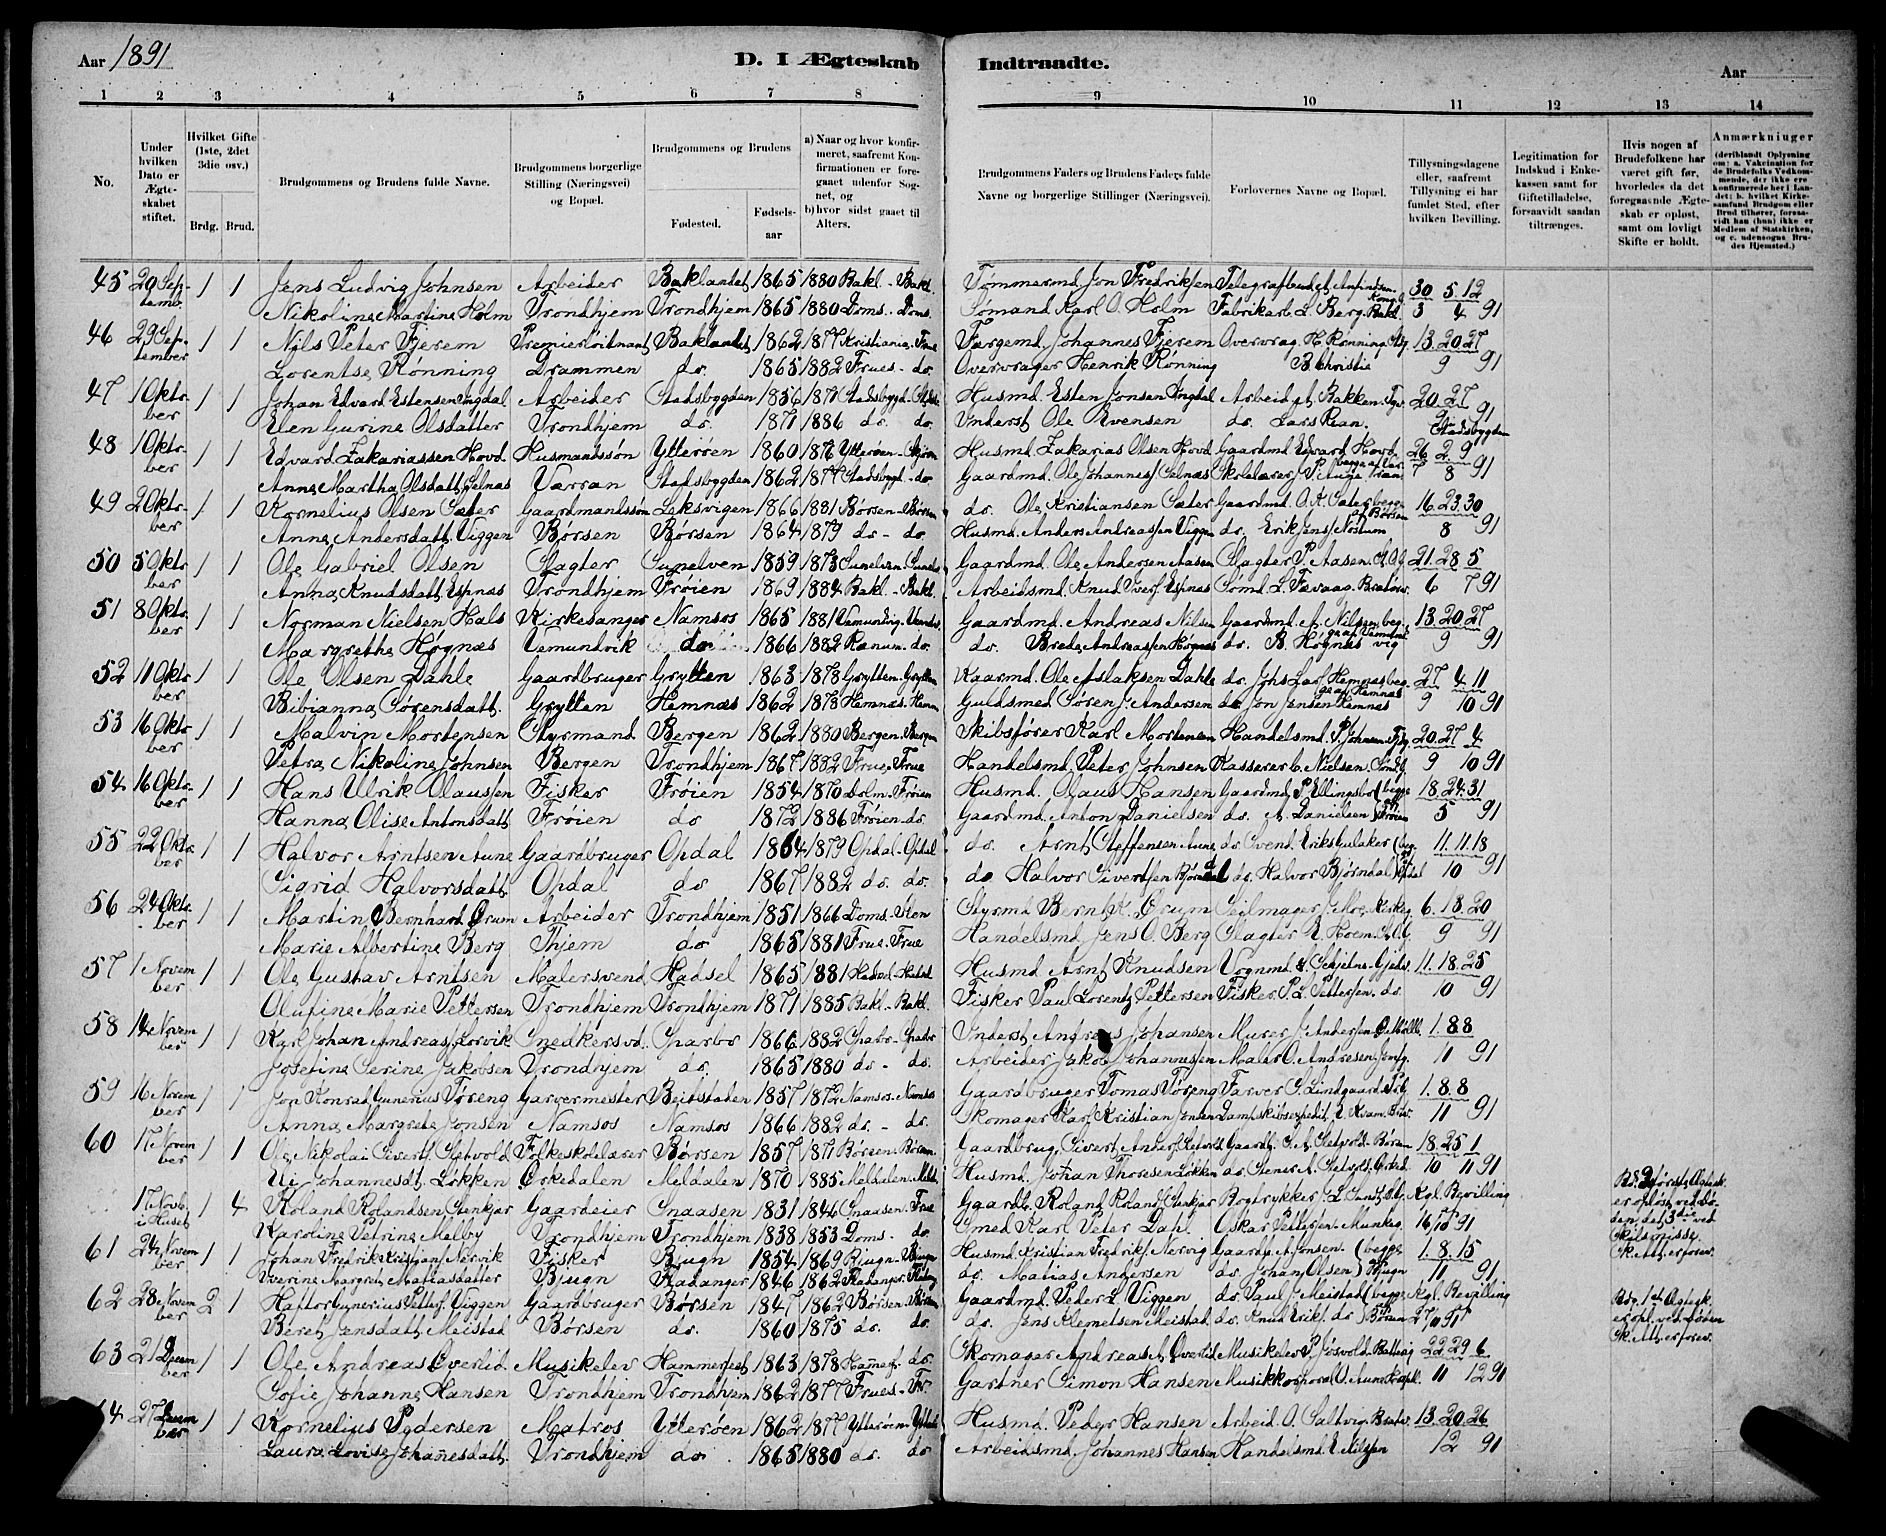 Aar 1891
D. I Ægteskab Indtraadte.
Aar
1 2 3 4 5 6 7 8 9 10 11 12 13 14
No.
Under hvilken Dato er Ægteskabet stiftet.
Hvilket Gifte (1ste, 2det 3die osv.)
Brdg. Brud.
Brudgommens og Brudens fulde Navne.
Brudgommens borgerlige Stilling (Næringsvei) og Bopæl.
Brudgommens og Brudens
Fødested. Fødselsaar
a) Naar og hvor konfirmeret, saafremt Konfirmationen er foregaaet udenfor Sognet, og
b) hvor sidst gaaet til Alters.
Brudgommens Faders og Brudens Faders fulde Navne og borgerlige Stillinger (Næringsvei).
Forlovernes Navne og Bopæl.
Tillysningsdagene eller, saafremt Tillysning ei har fundet Sted, efter hvilken Bevilling.
Legitimation for Indskud i Enkekassen samt for Giftetilladelse, forsaavidt saadan tiltrænges.
Hvis nogen af Brudefolkene har været gift før, hvorledes da det foregaaende Ægteskab er opløst, samt om lovligt Skifte er holdt.
Anmærkninger (deriblandt Oplysning om: a. Vakcination for de Brudefolks Vedkommende, der ikke ere konfirmerede her i Landet: b. hvilket Kirkesamfund Brudgom eller Brud tilhører, forsaavidt han (hun) ikke er Medlem af Statskirken, og c. udensogns Brudes Hjemsted.)
45 20 September 1 1 Jens Ludvig Johnsen Arbeider Baklandet 1865 1880 Bakl.- Bakl. Tømmermd. Jon Fredriksen 30 5.12
Nikoline Martine Holm Trondhjem Trondhjem 1865 1880 Doms.- Doms. Sømand Karl O. Holm Fabrikarb. L. Berg. Bakl. 3 4 91
46 29 September 1 1 Nils Peter Fjerem Premierløitnant Baklandet 1862 1877 Kristiania. Frue Færgemd. Johannes Fjerem Overvrag. H. Rønning 13.20.27
Lorentse Rønning Drammen do. 1865 1882 Frues- do. Overvrager Henrik Rønning B. Christie 9 91
47 1 Oktober 1 1 Johan Edvard Estensen Ingdal Arbeider Stadsbygden 1856 1876 Stadsbygd. Husmd. Esten Jonsen Ingdal Arbeid. A. Bakken. 20.27
Elen Gurine Olsdatter Trondhjem do. 1871 1886 do. do. Inderst Ole Evensen do. Lars Rian. 9 91 Stadsbygden
48 1 Oktober 1 1 Edvard Zakariassen Hovd. Husmandssøn Ytterøen 1860 1876 Ytterøen- Husmd. Zakarias Olsen Hovd Gaardmd. Edvard Hovd. 26 2.9
Anne Martha Olsdatt. Selnæs Værran Stadsbygden 1862 1877 Stadsbygd.- do. Gaardmd. Ole Johanness. Selnæs Skolelærer P. Auge 7 8 91
49 2 Oktober 1 1 Kornelius Olsen Sæter Gaardmandssøn Leksvigen 1866 1881 Børsen- Børsen do. Ole Kristiansen Sæter Gaardmd. O. K. Sæter begge af Børsen 16.23.30
Anne Andersdatt. Viggen Børsen Børsen 1864 1879 do- do. Husmd. Anders Andreassen Viggen do. Erik Jens. Nostum 8 91
50 5 Oktober 1 1 Ole Gabriel Olsen Slagter Sunelven 1859 1873 Sunelven Gaardmd. Ole Andersen Aasen Slagter P. Aasen. 21.28 5
Anna Knudsdatt. Espnæs Trondhjem Frøien 1869 1884 Bakl.- Bakl. Arbeidsmd. Knud Ivers. Espnæs Sømd. L. Fævaag. Bratørv. 6 7 91
51 8 Oktober 1 1 Norman Nielsen Hals Kirkesanger Namsos 1865 1881 Vemundvig. Gaardmd. Andreas Nilsen Gaardmd. A. Nilsen, beg. 13.20.27
Margrethe Høgnæs Vemundvik do. 1866 1882 Ranum. do. do. Brede Andreassen Høgnæs do. B. Høgnæs 9 91
52 11 Oktober 1 1 Ole Olsen Dahle Gaardbruger Grytten 1863 1878 Grytten- Grytten Kaarmd. Ole Aslaksen Dahle do. Johs Lar. Hemnæs beg. 27 4.11
Bibianna Sørensdatt. Grytten Hemnæs 1862 1878 Hemnæs. Guldsmed Søren J. Andersen do. Jon Jensen Hemnæs 9 10 91
53 16 Oktober 1 1 Malvin Mortensen Styrmand Bergen 1862 1880 Bergen. Bergen Skibsfører Karl Mortensen Handelsmd. P. Johnsen. 20.27 4
Petra Nikoline Johnsen Bergen Trondhjem 1867 1882 Frue, Frue Handelsmd. Peter Johnsen Kasserer C. Nielsen. 9 10 91
54 16 Oktober 1 1 Hans Ulrik Olaussen Fisker Frøien 1854 1870 Dolm- Frøien Husmd. Olaus Hansen Gaardmd. P. Ellingsbo (begge 18.24.31
Hanna Olise Antonsdatt. Frøien do 1872 1886 Frøien- do. Gaardmd. Anton Danielsen do. A. Danielsen Frøien 5 91
55 22 Oktober 1 1 Halvor Arntsen Aune Gaardbruger Opdal 1864 1879 Opdal- Opdal do. Arnt Steffensen Aune do. Svend Eriks. Gulaker 11.11.18
Sigrid Halvorsdatt. Opdal do 1867 1882 do. do. do Halvor Sivertsen Bjørndal do. Halvor Bjørndal Opdal 10 91
56 24 Oktober 1 1 Martin Bernhard Ørum Arbeider Trondhjem 1851 1866 Doms.- Ilen Styrmd. Bernt K. Ørum Seilmager J. Moe, 6.18.20
Marie Albertine Berg Thjem do 1865 1881 Frue- Frue Handelsmd. Jens O. Berg Slagter E. Hoem. 9 91
57 1 November 1 1 Ole Gustav Arntsen Malersvend Hadsel 1865 1881 Hadsel- Hadsel Husmd. Arnt Knudsen Vognmd. A. Schjelne- 11.18.25
Olufine Marie Pettersen Trondhjem Trondhjem 1871 1885 Bakl.- Bakl. Fisker Paul Lorentz Pettersen Fisker P. L. Pettersen. do. 10 91
58 14 November 1 1 Karl Johan Andreas Lorvik Snedkersvd. Sparbo 1866 1882 Sparbo- Sparbo Inderst Andreas Johansen Murer J. Andersen 1.8.8
Josefine Serine Jakobsen Trondhjem do. 1865 1880 do- do. Arbeider Jakob Johannesen Maler O. Andresen 11 91
59 16 November 1 1 Jon Konrad Gunerius Tøreng Garvermester Beitstaden 1857 1872 Namsos. Namsos Gaardbruger Tomas Tøreng Farver G. Lindgaard 1.8.8
Anna Margrete Jonsen Namsos Namsos 1866 1882 do.- do. Skomager Karl Kristian Jonsen Dampskibsexpedit. E. Kvam. 11 91
60 17 November 1 1 Ole Nikolai Sivert. Setvold Folkeskolelærer Børsen 1857 1871 Børsen- Børsen. Gaardbrug. Sivert Anders. Setvold Gaardb. S. A. Setvold. Børsen 18.25 1
Johannesdt. Løkken Orkedalen Meldalen 1870 1885 Meldalen. Husmd. Johan Thoresen Løkken do. Stener A. Setvold. Orked. 10 11 91
17 Novb. i Huset 1 4 Roland Rolandsen Stenkjær Gaardeier Snaasen 1831 1846 Snaasen. Frue Gaardb. Roland Roland. Stenkjær Bogtrykker L. Sand, Kgl. Bevilling
Karoline Petrine Melby Trondhjem Trondhjem 1838 1853 Doms.- do. Smed Karl Peter Dahl Oskar Pettersen. Munkeg. 16/10 91
61 24 November 1 1 Johan Fredrik Kristian Nervik Fisker Bjugn 1854 1869 Bjugn- Bjugn Husmd. Kristian Fredrik. Nervig Gaardb. A. Jonsen. (begge 1.8.15
Iverine Margret Matiasdatter Bjugn Stadanger 1846 1862 Stadanger. do. Matias Andersen do. Johan Olsen) Bjugn 11 91
62 28 November 2 1 Haftor Gunerius Petters. Viggen Gaardbruger Børsen 1847 1862 Børsen. Børsen Gaardmd. Peder L. Viggen do. Paul J. Meistad (begge Kgl. Bevilling
Beret Jensdatt. Meistad Børsen do. 1860 1875 do. do. do. Jens Klemetsen Meistad do. Knud Eriks. do Børsen 27/10 91
63 21 December 1 1 Ole Andreas Overlid Musikelev Hammerfest 1863 1878 Hammerf. do. Skomager Andreas A. Overlid Musikelev P. Jøsvold. 22 29 6
Sofie Johanne Hansen Trondhjem Trondhjem 1862 1877 Frues- Fr. Gartner Simon Hansen Musikkorporal O. Aune 11 12 91
64 27 December 1 1 Kornelius Pedersen Matros Ytterøen 1862 1877 Ytterøen- Husmd. Peder Hansen Arbeid. O. Saltvig. Bratør. 13.20.26
Laura Lovise Johannesdatt. Trondhjem do. 1865 1880 do. do. Arbeidsmd. Johannes Hansen Handelsmd. E. Nilssen 12 91